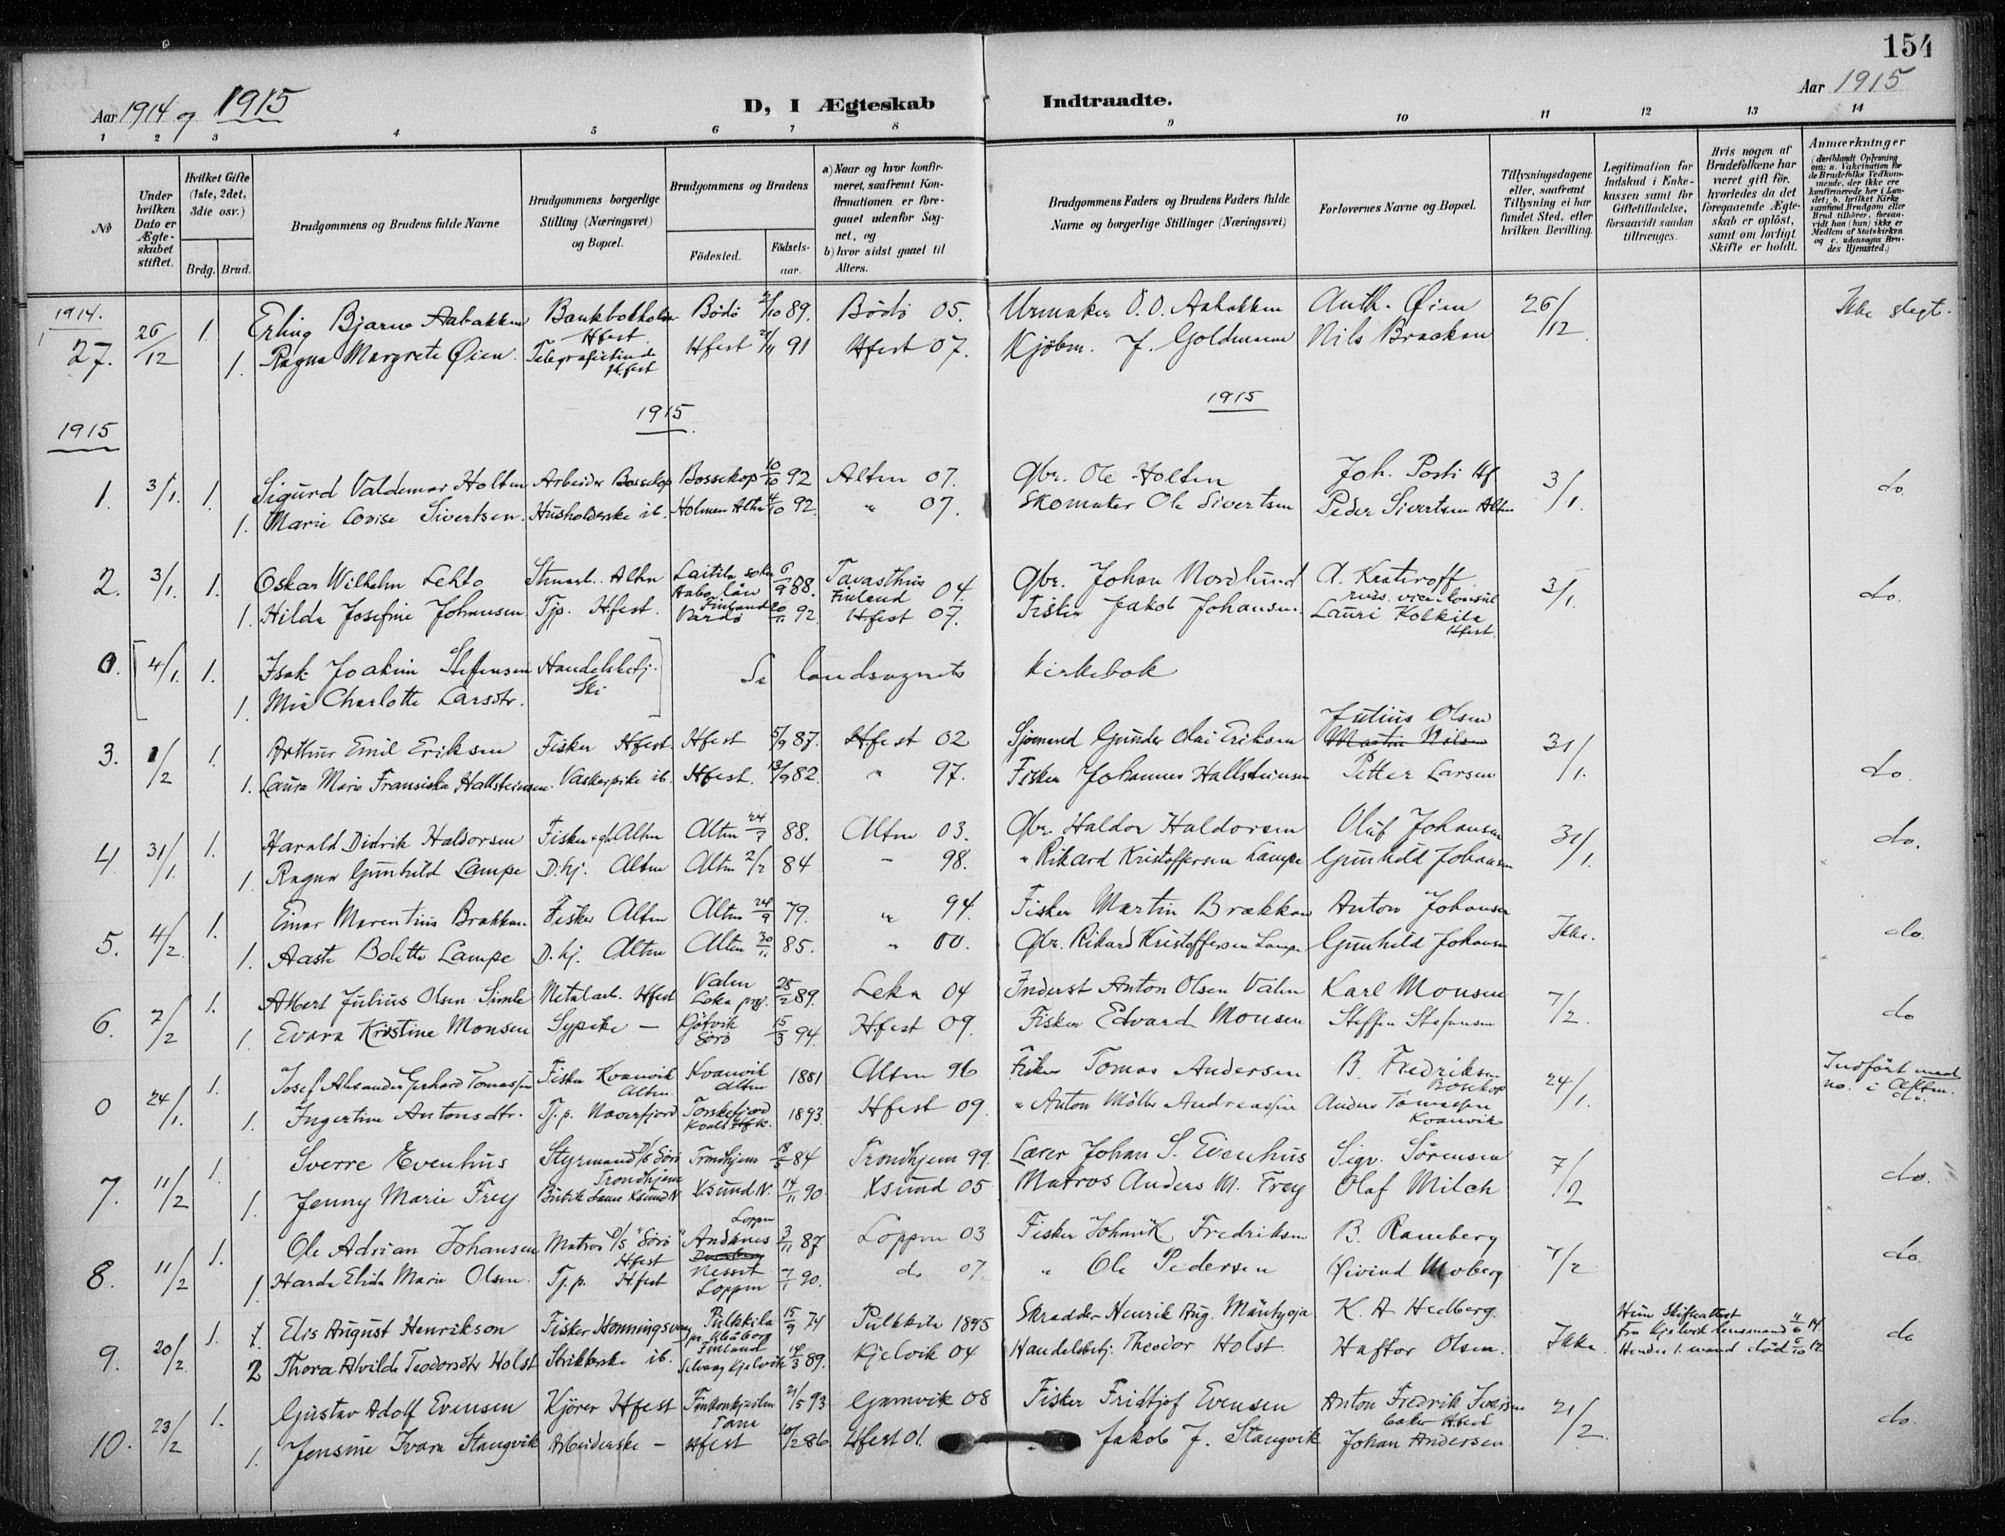 154
Aar 1914 og 1915
D, I Ægteskab Indtraadte.
Aar 1915
1 2 3 4 5 6 7 8 9 10 11 12 13 14
No
Under hvilken Dato er Ægteskabet stiftet.
Hvilket Gifte (1ste, 2det, 3die osv.)
Brdg. Brud.
Brudgommens og Brudens fulde Navne
Brudgommens borgerlige Stilling (Næringsvei) og Bopæl.
Brudgommens og Brudens
Födested. Födselsaar.
a) Naar og hvor konfirmeret, saafremt Konfirmationen er foregaaet udenfor Sognet, og
b) hvor sidst gaaet til Alters.
Brudgommens Faders og Brudens Faders fulde Navne og borgerlige Stillinger (Næringsvei)
Forlovernes Navne og Bopæl.
Tillysningsdagene eller, saafremt Tillysning ei har fundet Sted, efter hvilken Bevilling.
Legitimation for Indskud i Enkekassen samt for Giftetilladelse, forsaavidt saadan tiltrænges.
Hvis nogen af Brudefolkene har været gift för, hvorledes da det foregaaende Ægteskab er oplöst, samt om lovligt Skifte er holdt.
Anmærkninger (deriblandt Oplysning om: a. Vakcination for de Brudefolks Vedkommende, der ikke ere konfirmerede her i Landet; b. hvilket Kirkesamfund Brudgom eller Brud tilhörer, forsaavidt han (hun) ikke er Medlem af Statskirken og c. udensogns Brudes Hjemsted.)
1914.
27. 26/12 1. Erling Bjarne Aabakken Bankbokholder Hfest. Bodö 21/10 89. Bodö 05. Urmaker O. O. Aabakken Anth. Øien 26/12 Ikke slegt.
1. Ragna Margrete Øien. Telegrafistinde Hfest Hfest 91 Hfest 07. Kjöbm. J. Goldmann Nils Bracken
1915 1915 1915
1. 3/1. 1. Sigurd Valdemar Holten Arbeider Bossekop Bossekop 10/10 92 Alten 07. Gbr. Ole Holten Joh. Posti Hf 3/1. do.
1. Marie Lovise Sivertsen. Husholderske ib. Holmen Alten 4/10 92. " 07. Skomaker Ole Sivertsen Peder Sivertsen Alten
2. 3/1. 1. Oskar Wilhelm Lehto Alten Laitila sokn Aabo län Finland 6/9 88. Tavasthus Finland 04. Gbr. Johan Nordlund A. russ. vicekonsul 3/1. do.
1. Hilda Josefine Johansen Tjp. Hfest. Vardö 20/11 92. Hfest 07. Fisker Jakob Johansen. Lauri Kolkila Hfest.
0. [4/1. 1. Isak Joakim Steffensen Handelsbetj. Ski] Se landsognets kirkebok
1. Mia Charlotte Larsdtr.
3. 1/2 1. Arthur Emil Eriksen Fisker Hfest Hfest 5/9 87. Hfest 02 Sjömand Gunder Olai Eriksen Julius Olsen 31/1. do.
1. Laura Marie Fransiska Hallsteinsen. Vaskerpike ib. Hfest. 13/9 82. " 97. Fisker Johannes Hallsteinsen Petter Larsen
4. 31/1. 1. Harald Didrik Haldorsen Fisker Alten Alten 24/7 88. Alten 03. Gbr. Haldor Haldorsen Oluf Johansen 31/1. do.
1. Ragna Gunhild Lampe D.hj. Alten Alten 2/2 84 " 98. " Rikard Kristoffersen Lampe Gunhild Johansen
5. 4/2 1. Einar Marentius Brækkan Fisker Alten Alten 24/9 79. " 94. Fisker Martin Brækkan Anton Johansen Ikke. do
1. Aasta Bolette Lampe D.hj. Alten Alten 30/11 85. " 00. Gbr. Rikard Kristoffersen Lampe Gunhild Johansen
6. 7/2 1. Albert Julius Olsen Simle Metalarb. Hfest Valen Leka prg. 28/2 89. Leka 04 Inderst Anton Olsen Valen Karl Monsen 7/2. do
1. Evara Kristine Monsen Sypike — Gjöfvik Sörö 15/3 94. Hfest 09. Fisker Edvard Monsen Steffen Stefansen
0 24/1. 1. Josef Alexander Gerhard Tomassen Fisker Kvænvik Alten. Kvænvik Alten 1881 Alten 96 Fisker Tomas Andersen B. Fredriksen Bosekop 24/1. Indført med no. i Alten. do.
1. Ingertine Antonsdtr. Tj.p. Naverfjord Torskefjord Kvals. Hfk. 1893. Hfest 09. " Anton Möller Andreassen Anders Tomassen Kvænvik
7. 11/2 1. Sverre Evenhus Styrmand D/S Sörö Trondhjem Trondhjem 18/5 84 Trondhjem 99. Lærer Johan S. Evenhus Sigv. Sörensen 7/2 do.
1. Jenny Marie Frey Butikdame Ksund N. Ksund N. 14/11 90. Ksund 05 Matros Anders M. Frey Olaf Milch
8. 11/2 1. Ole Adrian Johansen Matros D/S "Sörö" Hfest Loppen Andsnes 3/11 87 Loppen 03 Fisker Fredriksen B. Ramberg 7/2 do.
1. Harda Elida Marie Olsen. Tj.p. Hfest Loppen 7/1 90. do 07. " Ole Pedersen Øivind Moberg
9. 20/2. 1. 1. Elis August Henrikson Fisker Honningsvaag Pulkkila pr. Uleåborg Finland 15/9 74 Pulkkila 1895 Skrædder Henrik Aug. Mäntyoja K. A. Hedberg. Ikke. Hun Skifteattest fra Kjelvik lensmand 4/6 14 do
2 Thora Alvilde Teodorsdtr Holst Strikkerske ib. Kjelvik 14/3 89. Kjelvik 04 Handelsbetj. Theodor Holst Haftor Olsen. Hendes 1. mand död 5/10 12
10. 23/2 1. Gustav Adolf Evensen Kjörer Hfest Finkonkjeilen Tana 21/5 93 Gamvik 08 Fisker Fridtjof Evensen Anton Fredrik Iversen baker Hfest 21/2. do.
1. Jensine Ivara Stangvik Arbeiderske — Hfest 10/2 86 Hfest 01. " Jakob J. Stangvik Johan Andersen